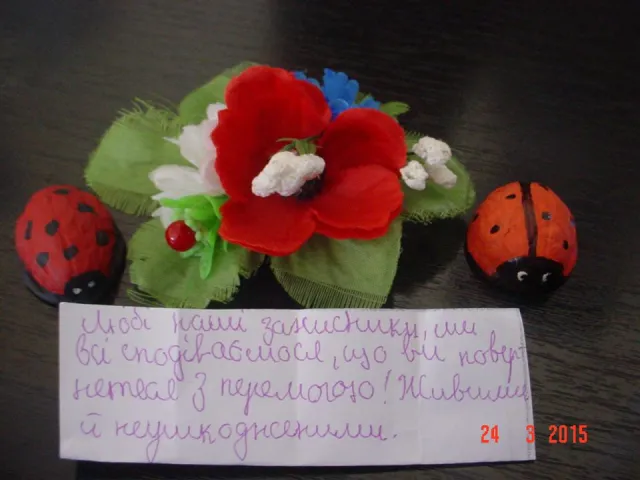 Любі наші захисники, ми
всі сподіваємося, що ви поверт
нетеся з перемогою! Живими
й неушкодженими.
24 3 2015